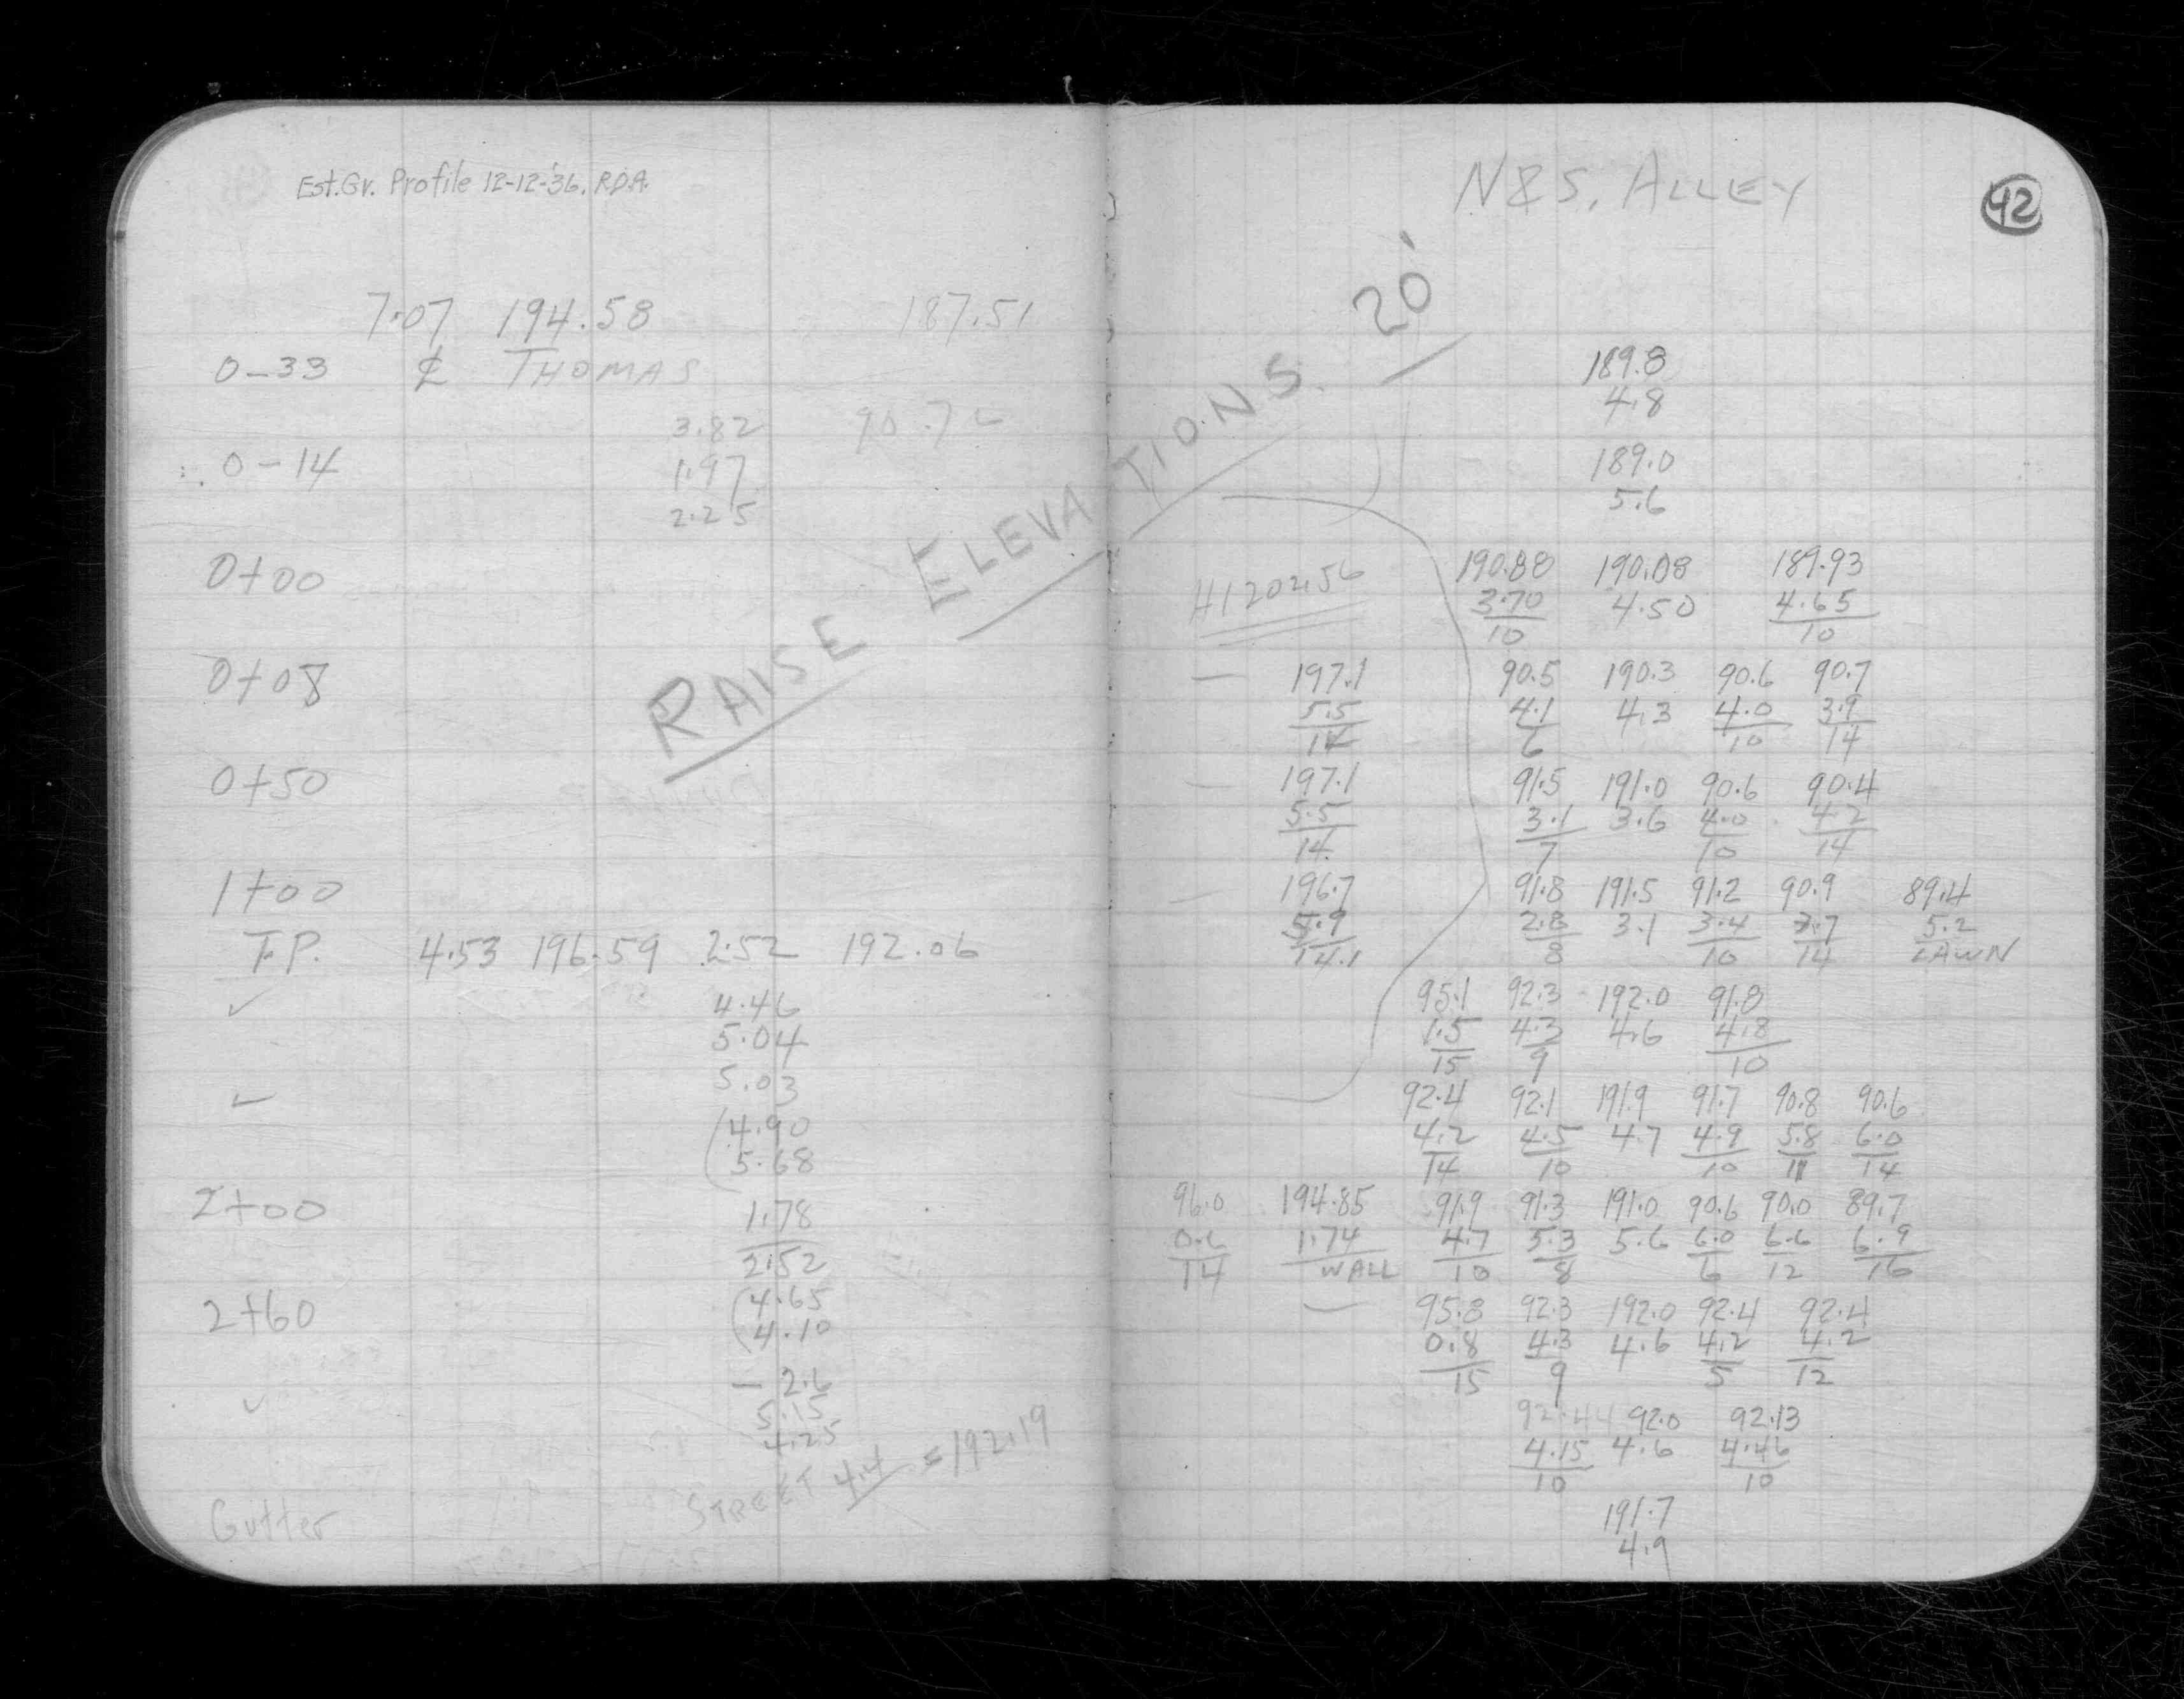 Est. Gr. Profile 12-12-'36. R.D.A.
7.07 194.58 187.51
0-33 ₵ THOMAS
3.82
0-14 1.97
2.25
0+00
0+08
0+50
1+00
T.P. 4.53 196.59 2.52 192.06
✓ 4.46
5.04
5.03
4.90
5.68
2+00 1.78
2.52
2+60 (4.65
4.10
- 2.6
✓ 5.15
4.25
STREET 4.4 = 192.19
Gutter
RAISE ELEVATIONS. 20'
N & S. ALLEY
42
189.8
4.8
189.0
5.6
190.88 190.08 189.93
HI 202.56 3.70 4.50 4.65
10 10
— 197.1 90.5 190.3 90.6 90.7
5.5 4.1 4.3 4.0 3.9
14 6 10 14
— 197.1 91.5 191.0 90.6 90.4
5.5 3.1 3.6 4.0 4.2
14 7 10 14
— 196.7 91.8 191.5 91.2 90.9 89.4
5.9 2.8 3.1 3.4 3.7 5.2
14.1 8 10 14 LAWN
95.1 92.3 192.0 91.8
1.5 4.3 4.6 4.8
15 9 10
92.4 92.1 191.9 91.7 90.8 90.6
4.2 4.5 4.7 4.9 5.8 6.0
14 10 10 11 14
96.0 194.85 91.9 91.3 191.0 90.6 90.0 89.7
0.6 1.74 4.7 5.3 5.6 6.0 6.6 6.9
14 WALL 10 8 6 12 16
— 95.8 92.3 192.0 92.4 92.4
0.8 4.3 4.6 4.2 4.2
15 9 5 12
92.44 92.0 92.13
4.15 4.6 4.46
10 10
191.7
4.9